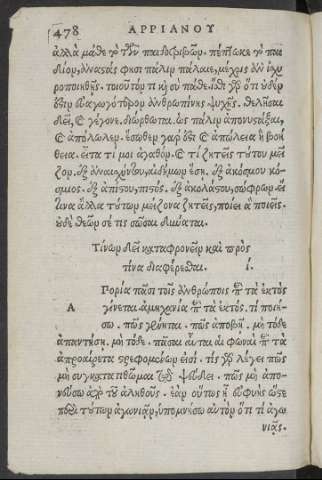 478 ΑΡΡΙΑΝΟΥ
ἀλλὰ μάθε τὸ τῶν παιδοτριβῶν. πέπτωκε τὸ παι
δίον, ἀναστὰς φησι πάλιν πάλαιε, μέχρις ἂν ἰσχυ
ροποιηθῇς. τοιοῦτόν τι καὶ σὺ πάθε. ἴσθι γὰρ ὅτι οὐδέν
ἐστιν εὐαγωγότερον ἀνθρωπίνης ψυχῆς. θελῆσαι
δεῖ, καὶ γέγονε, διώρθωται. ὡς πάλιν ἀπονυστάξαι,
καὶ ἀπόλωλεν. ἔσωθεν γάρ ἐστι καὶ ἀπώλεια καὶ βοή
θεια. εἶτα τί μοι ἀγαθόν. καὶ τί ζητεῖς τούτου μεῖ
ζον. ἐξ ἀναισχύντου, αἰδήμων ἔσῃ. ἐξ ἀκόσμου κό-
σμιος. ἐξ ἀπίστου, πιστός. ἐξ ἀκολάστου, σώφρων. εἴ
τινα ἄλλα τούτων μείζονα ζητεῖς, ποίει ἃ ποιεῖς.
οὐδὲ θεῶν σέ τις σῶσαι δύναται.
Τίνων δεῖ καταφρονεῖν καὶ πρὸς
τίνα διαφέρεσθαι. ί.
Α Πορία πᾶσι τοῖς ἀνθρώποις περὶ τὰ ἐκτὸς
γίνεται. ἀμηχανία περὶ τὰ ἐκτός. τί ποιή-
σω. πῶς γένηται. πῶς ἀποβῇ. μὴ τόδε
ἀπαντήσῃ. μὴ τόδε. πᾶσαι αὗται αἱ φωναὶ περὶ τὰ
ἀπροαίρετα στρεφομένων εἰσί. τίς γὰρ λέγει πῶς
μὴ συγκαταθῶμαι τῷ ψεύδει. πῶς μὴ ἀπο-
νεύσω ἀπὸ τοῦ ἀληθοῦς. ἐὰν οὕτως ᾖ εὐφυὴς ὥστε
περὶ τούτων ἀγωνιᾶν, ὑπομνήσω αὐτὸν ὅτι τί ἀγω
νιᾷς.